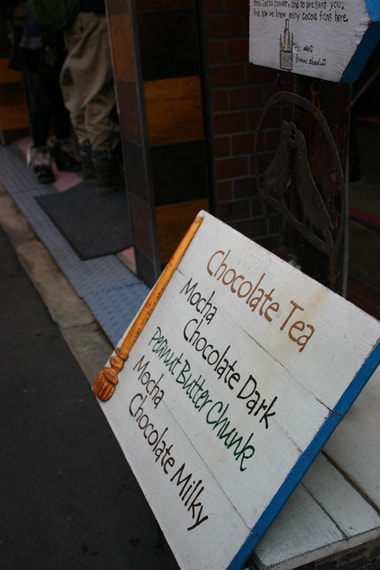 and to present you,
And now we know many cocoa fans here,
Chocolate Tea
Mocha
Chocolate Dark
Peanut Butter Chunk
Mocha
Chocolate Milky